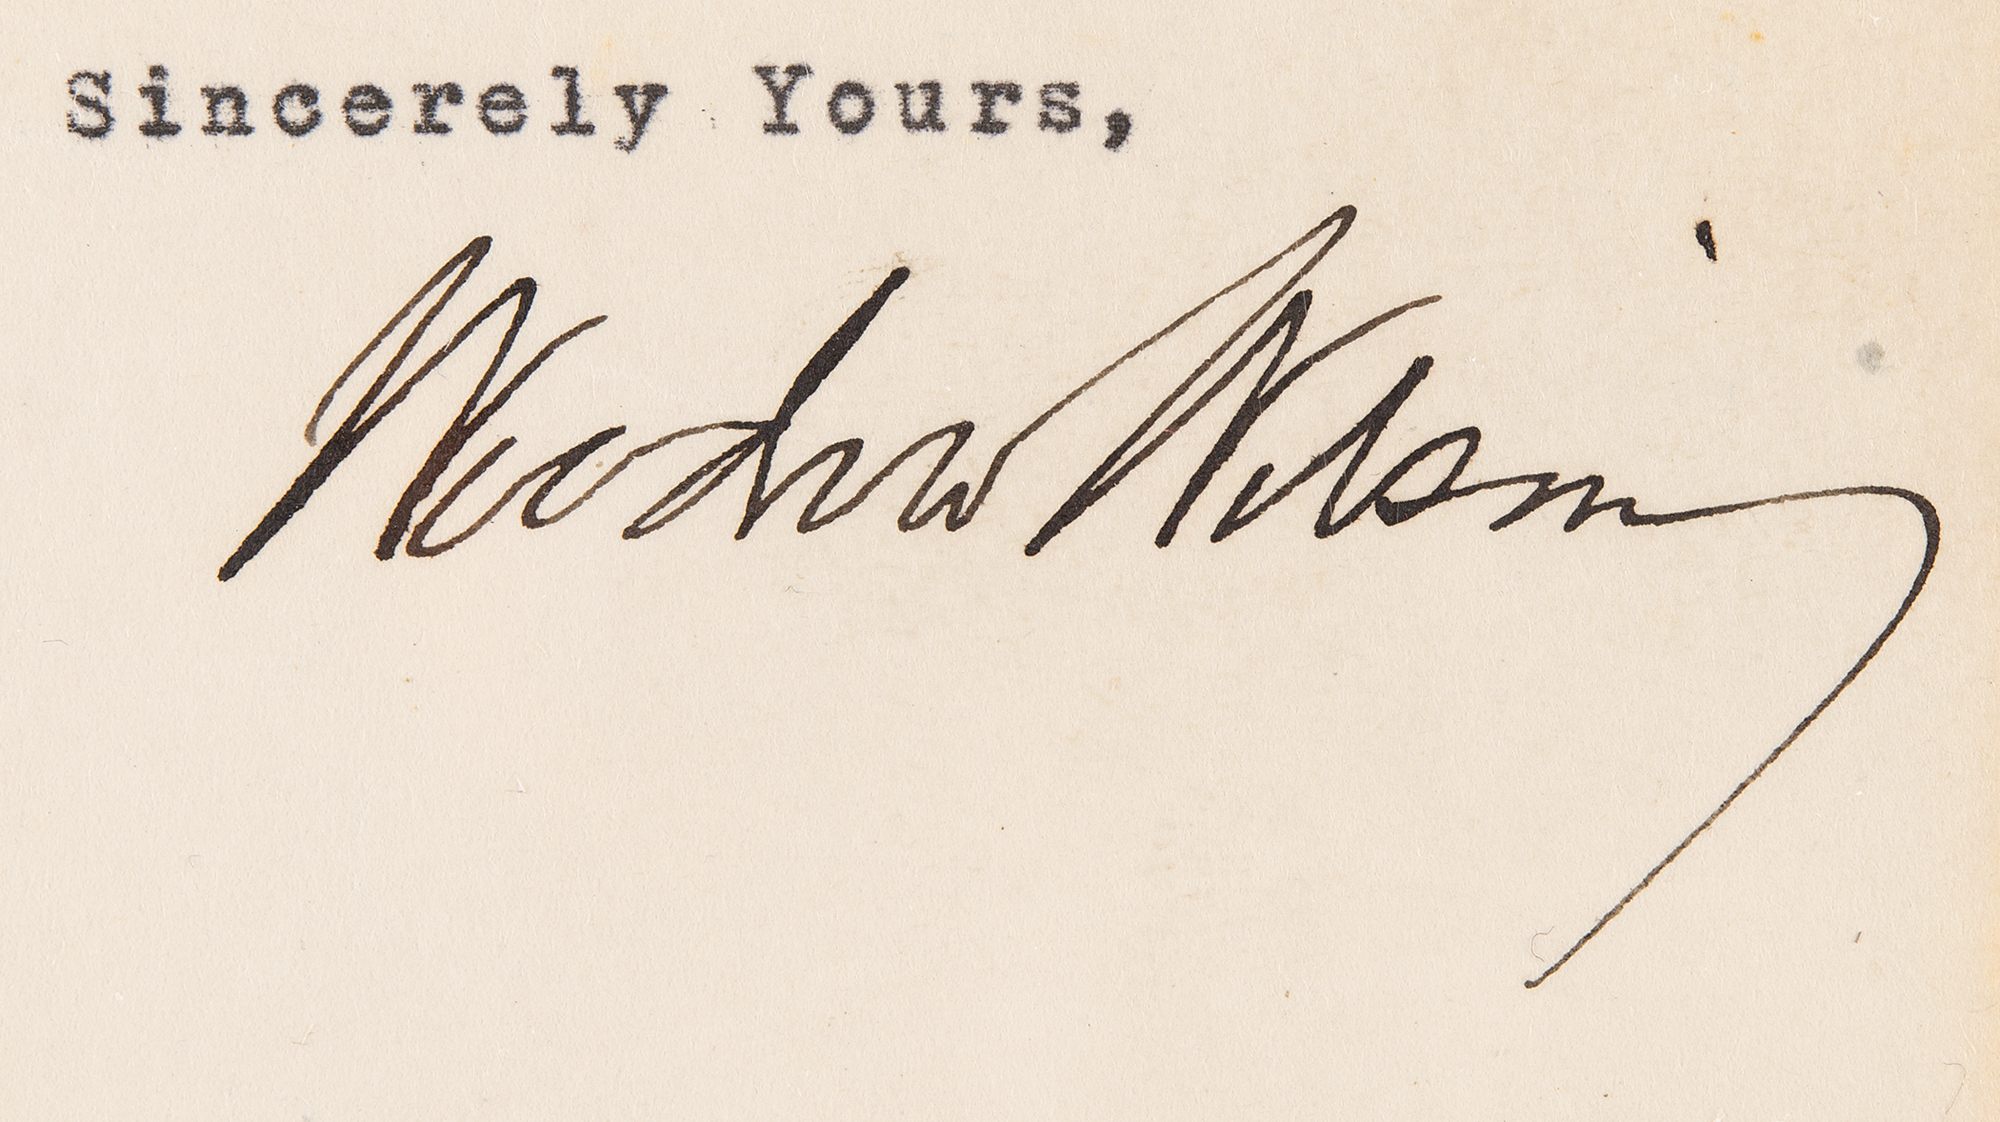 Sincerely Yours,
Woodrow Wilson